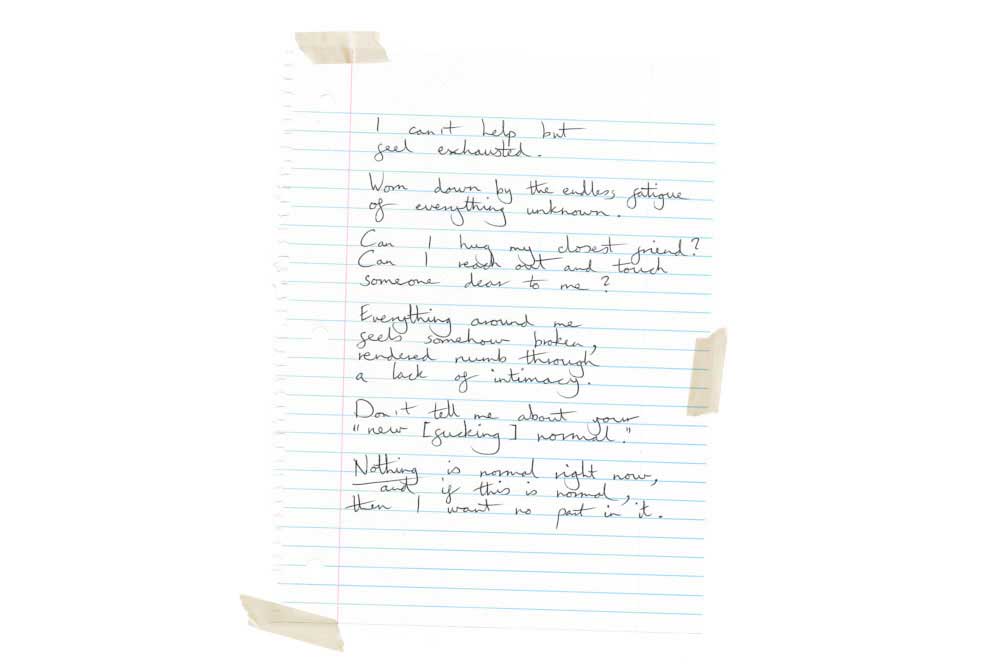 I can't help but
feel exhausted.
Worn down by the endless fatigue
of everything unknown.
Can I hug my closest friend?
Can I reach out and touch
someone dear to me?
Everything around me
feels somehow broken,
rendered numb through
a lack of intimacy.
Don't tell me about your
"new [fucking] normal."
Nothing is normal right now,
and if this is normal,
then I want no part in it.